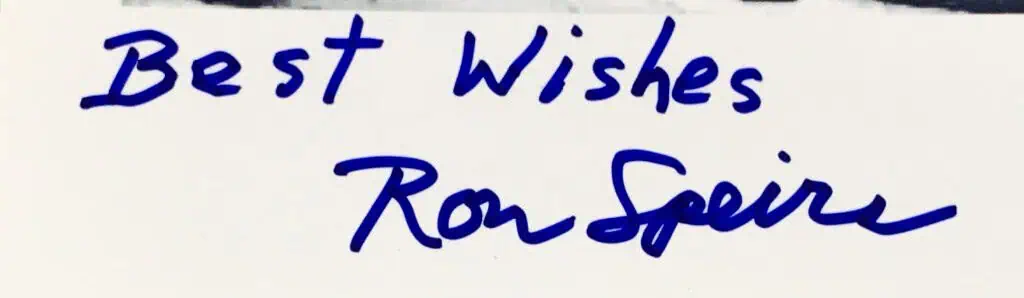 Best Wishes
Ron Speirs